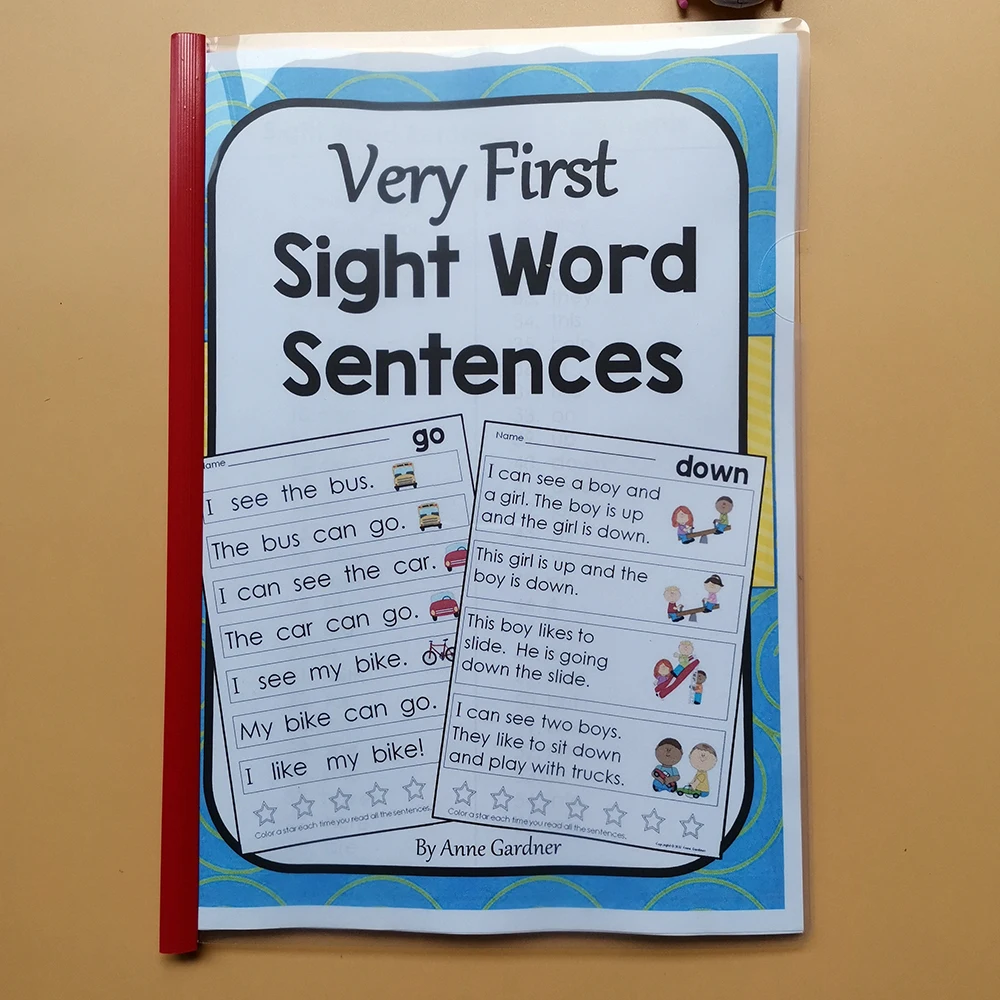 Very First
Sight Word
Sentences
Name
go
I see the bus.
The bus can go.
I can see the car.
The car can go.
I see my bike.
My bike can go.
I like my bike!
Color a star each time you read all the sentences.
Name
down
I can see a boy and
a girl. The boy is up
and the girl is down.
This girl is up and the
boy is down.
This boy likes to
slide. He is going
down the slide.
I can see two boys.
They like to sit down
and play with trucks.
Color a star each time you read all the sentences.
By Anne Gardner